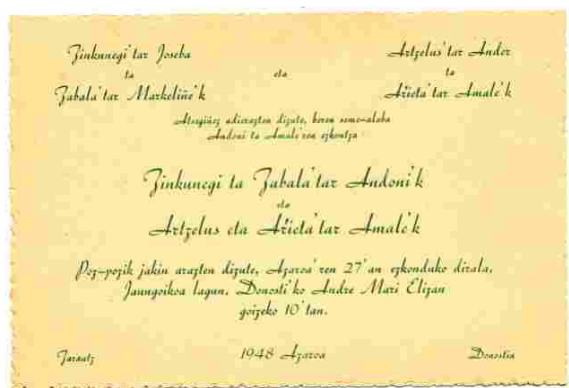 Zinkunegi'tar Joseba
ta
Zabala'tar Markeliñe'k
eta
Artzelus'tar Ander
ta
Aŕieta'tar Amale'k
Atsegiñez adierazten dizute, beren seme-alaba
Andoni ta Amale'ren ezkontza
Zinkunegi ta Zabala'tar Andoni'k
eta
Artzelus eta Aŕieta'tar Amale'k
Poz-pozik jakin arazten dizute, Azaroa'ren 27'an ezkonduko dirala,
Jaungoikoa lagun, Donosti'ko Andre Mari Elizan
goizeko 10'tan.
Zarautz
1948 Azaroa
Donostia